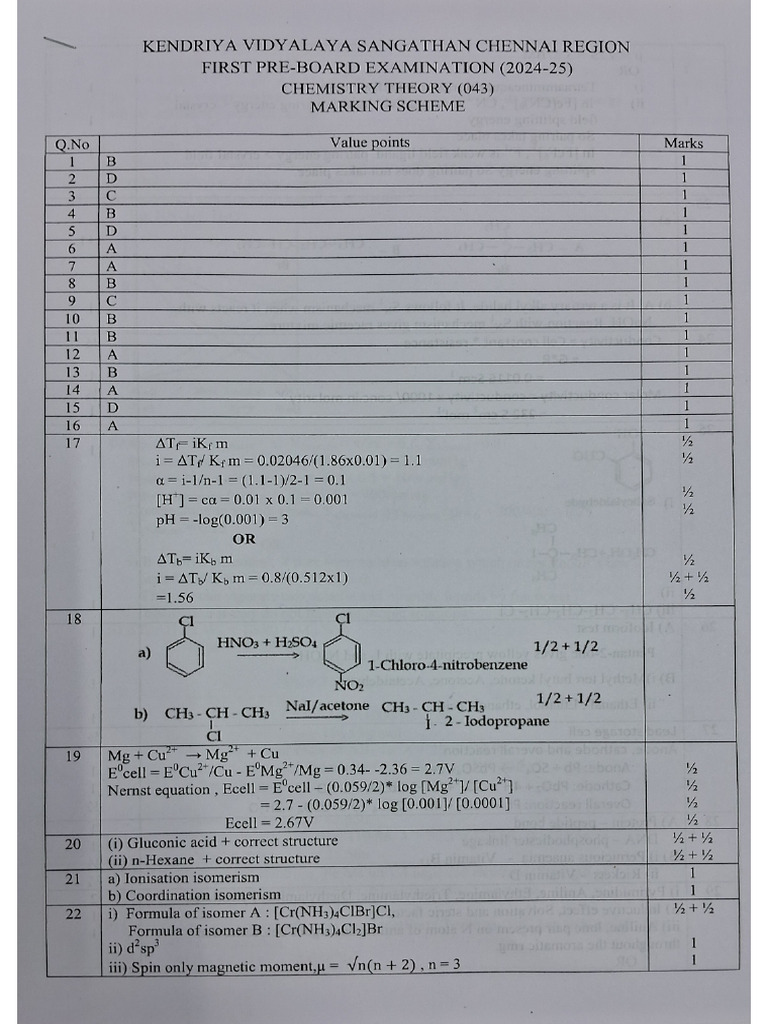 KENDRIYA VIDYALAYA SANGATHAN CHENNAI REGION
FIRST PRE-BOARD EXAMINATION (2024-25)
CHEMISTRY THEORY (043)
MARKING SCHEME
Q.No Value points Marks
1 B 1
2 D 1
3 C 1
4 B 1
5 D 1
6 A 1
7 A 1
8 B 1
9 C 1
10 B 1
11 B 1
12 A 1
13 B 1
14 A 1
15 D 1
16 A 1
17 ΔTf= iKf m ½
i = ΔTf/ Kf m = 0.02046/(1.86x0.01) = 1.1 ½
α = i-1/n-1 = (1.1-1)/2-1 = 0.1
[H⁺] = cα = 0.01 x 0.1 = 0.001 ½
pH = -log(0.001) = 3 ½
OR
ΔTb= iKb m ½
i = ΔTb/ Kb m = 0.8/(0.512x1) ½ + ½
=1.56 ½
18 Cl Cl
a) HNO3 + H2SO4 1/2 + 1/2
1-Chloro-4-nitrobenzene
NO2
b) CH3 - CH - CH3 NaI/acetone CH3 - CH - CH3 1/2 + 1/2
Cl I 2 - Iodopropane
19 Mg + Cu²⁺ → Mg²⁺ + Cu
E⁰cell = E⁰Cu²⁺/Cu - E⁰Mg²⁺/Mg = 0.34- -2.36 = 2.7V ½
Nernst equation , Ecell = E⁰cell – (0.059/2)* log [Mg²⁺]/ [Cu²⁺] ½
= 2.7 - (0.059/2)* log [0.001]/ [0.0001] ½
Ecell = 2.67V ½
20 (i) Gluconic acid + correct structure ½ + ½
(ii) n-Hexane + correct structure ½ + ½
21 a) Ionisation isomerism 1
b) Coordination isomerism 1
22 i) Formula of isomer A : [Cr(NH3)4ClBr]Cl, ½ + ½
Formula of isomer B : [Cr(NH3)4Cl2]Br
ii) d²sp³ 1
iii) Spin only magnetic moment,μ = √n(n + 2) , n = 3 1